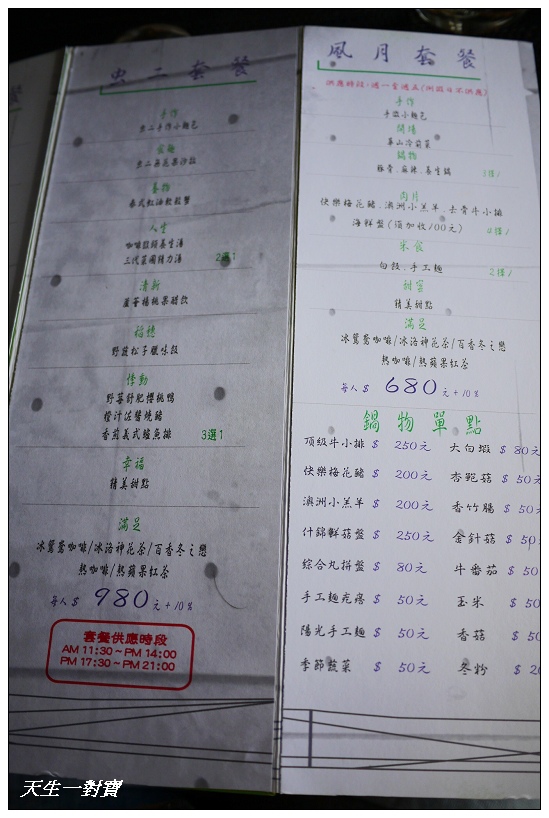 虫二套餐
手作
虫二手作小麵包
食趣
虫二無花果沙拉
喜物
泰式紅油軟殼蟹
人生
咖啡蘑菇養生湯
三代菜圃雞力湯 2選1
清新
蘆薈楊桃果醋飲
稻穗
野蔬松子臘味飯
悸動
野莓舒肥櫻桃鴨
橙汁佐醬燒豬
香煎義式鱸魚排 3選1
幸福
精美甜點
滿足
冰鴛鴦咖啡/冰洛神花茶/百香冬之戀
熱咖啡/熱蘋果紅茶
每人$ 980元+10%
套餐供應時段
AM 11:30~PM 14:00
PM 17:30~PM 21:00
風月套餐
供應時段:週一至週五(例假日不供應)
手作
手做小麵包
開場
冷前菜
鍋物
豚骨.麻辣.養生鍋 1擇1
肉片
快樂梅花豬.澳洲小羔羊.去骨牛小排
海鮮盤(須加收100元) 4擇1
米食
白飯.手工麵 2擇1
甜蜜
精美甜點
滿足
冰鴛鴦咖啡/冰洛神花茶/百香冬之戀
熱咖啡/熱蘋果紅茶
每人$ 680元+10%
鍋物單點
頂級牛小排 $ 250元 大白蝦 $ 80元
快樂梅花豬 $ 200元 杏鮑菇 $ 50元
澳洲小羔羊 $ 200元 香竹腸 $ 50元
什錦鮮菇盤 $ 250元 金針菇 $ 50
綜合丸拼盤 $ 80元 牛番茄 $ 50
手工麵疙瘩 $ 50元 玉米 $ 50
陽光手工麵 $ 50元 香菇 $ 50
季節蔬菜 $ 50元 冬粉 $ 20
天生一對寶